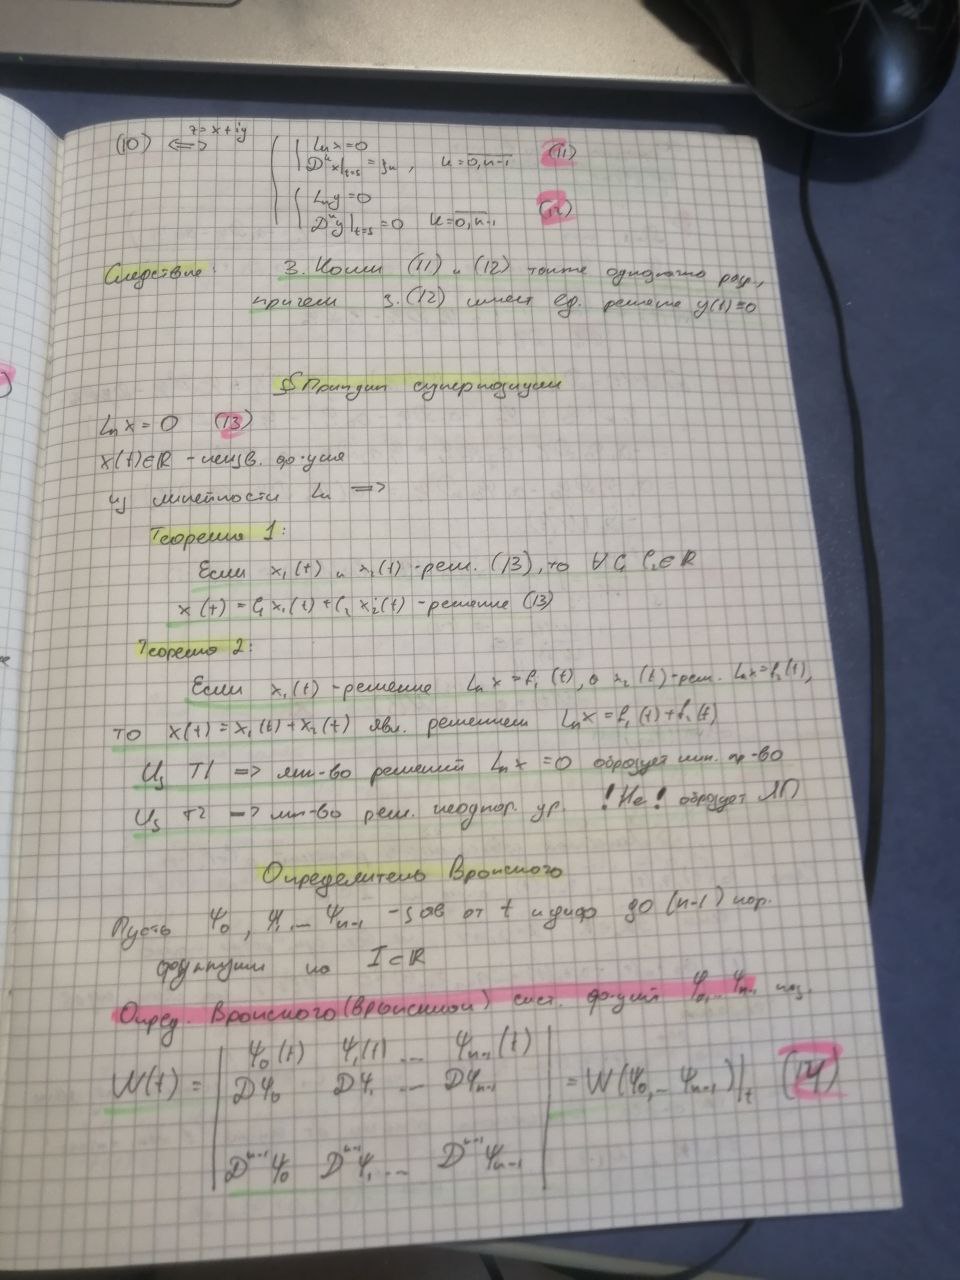 (10) <=> z = x+iy
Lₙx = 0
Dᵏx|ₜ₌ₛ = ξₖ, k = 0,n-1 (11)
Lₙy = 0
Dᵏy|ₜ₌ₛ = 0 k = 0,n-1 (12)
Следствие: З. Коши (11) и (12) тоже однозначно разр.,
причем з. (12) имеет ед. решение y(t)≡0
§ Принцип суперпозиции
Lₙx = 0 (13)
x(t)∈ℝ - неизв. ф-ция
из линейности Lₙ =>
Теорема 1:
Если x₁(t) и x₂(t) - реш. (13), то ∀ C₁ C₂∈ℝ
x(t) = C₁x₁(t) + C₂x₂(t) - решение (13)
Теорема 2:
Если x₁(t) - решение Lₙx = f₁(t), а x₂(t) - реш. Lₙx = f₂(t),
то x(t) = x₁(t) + x₂(t) явл. решением Lₙx = f₁(t) + f₂(t)
Из Т1 => мн-во решений Lₙx = 0 образует лин. пр-во
Из Т2 => мн-во реш. неоднор. ур. !Не! образует ЛП
Определитель Вронского
Пусть Ψ₀, Ψ₁ ... Ψₙ₋₁ - зав от t и диф до (n-1) пор.
функции на I⊂ℝ
Опред. Вронского (вронскиан) сист. ф-ций Ψ₀,... Ψₙ₋₁ наз.
Ψ₀(t) Ψ₁(t) ... Ψₙ₋₁(t)
W(t) = | DΨ₀ DΨ₁ ... DΨₙ₋₁ | = W(Ψ₀,... Ψₙ₋₁)|ₜ (14)
Dⁿ⁻¹Ψ₀ Dⁿ⁻¹Ψ₁ ... Dⁿ⁻¹Ψₙ₋₁